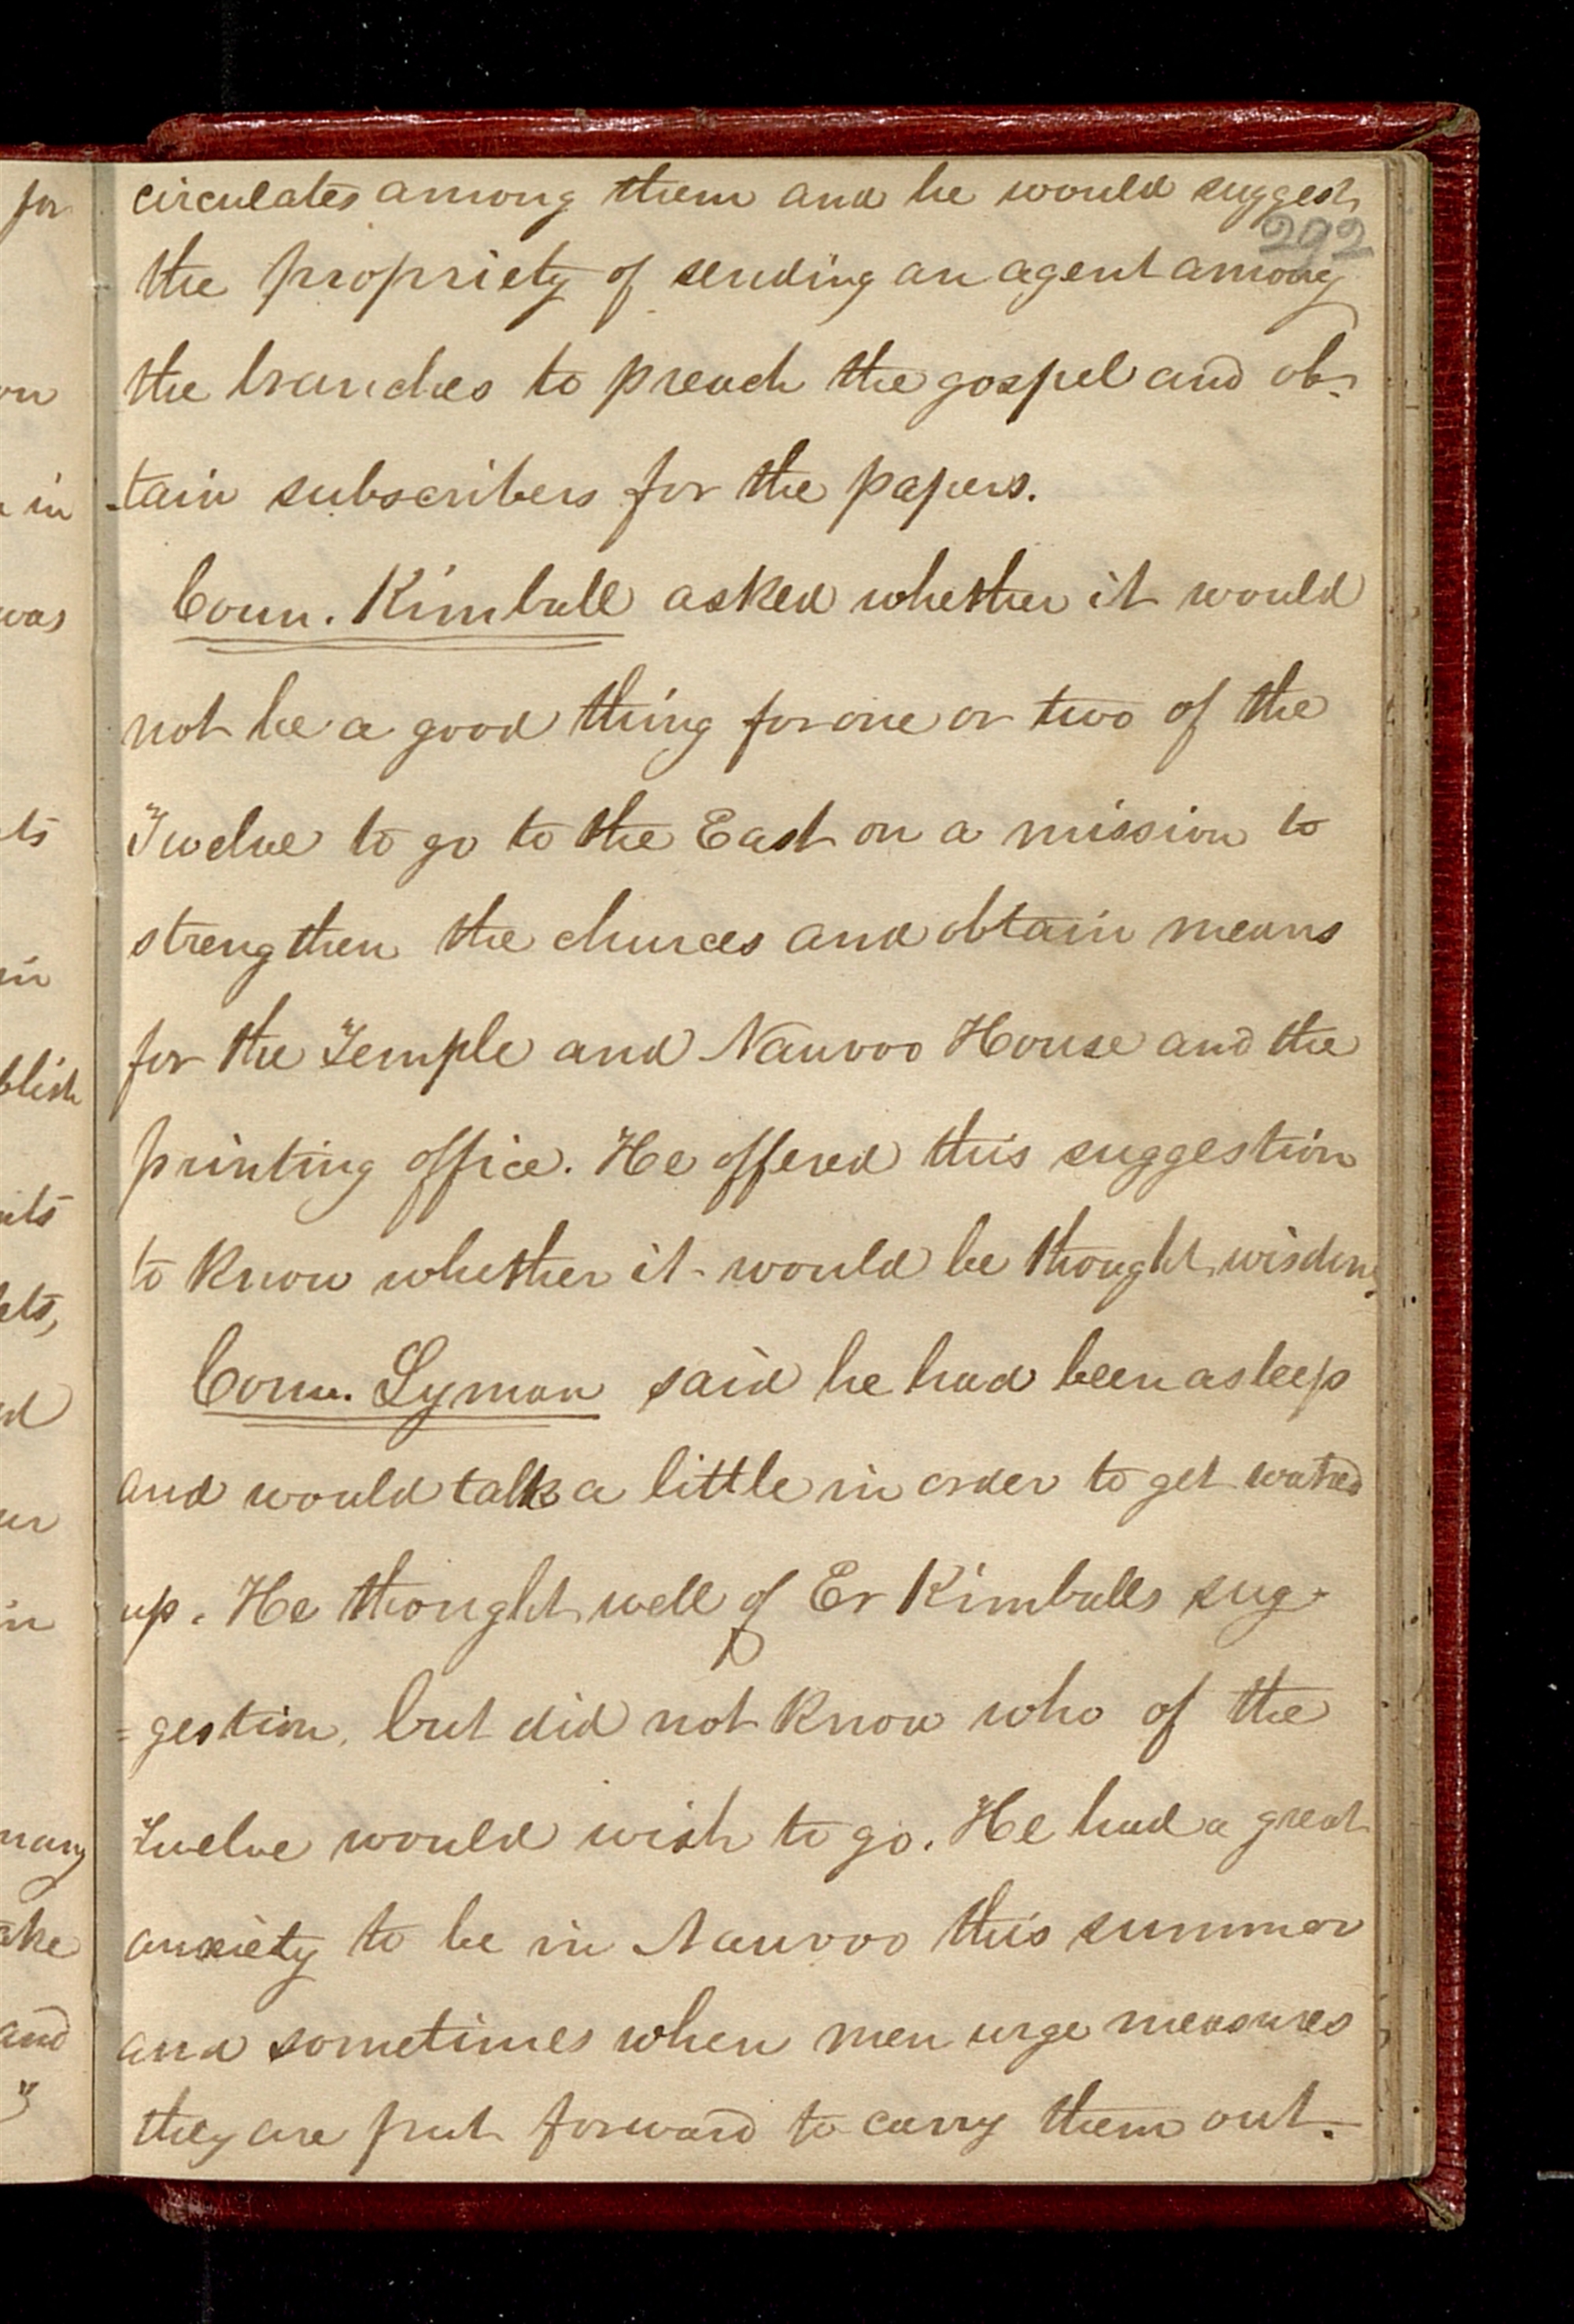 circulates among them and he would suggest
292
the propriety of sending an agent among
the branches to preach the gospel and ob-
-tain subscribers for the papers.
Coun. Kimball asked whether it would
not be a good thing for one or two of the
Twelve to go to the East on a mission to
strengthen the churces and obtain means
for the Temple and Nauvoo House and the
printing office. He offered this suggestion
to know whether it would be thought wisdom.
Coun. Lyman said he had been asleep
and would talk a little in order to get waked
up. He thought well of Er Kimballs sug-
=gestion, but did not know who of the
Twelve would wish to go. He had a great
anxiety to be in Nauvoo this summer
and sometimes when men urge measures
they are put forward to carry them out.
for
on
in
was
ts
in
blish
nts
ets,
ed
ur
in
many
ake
and